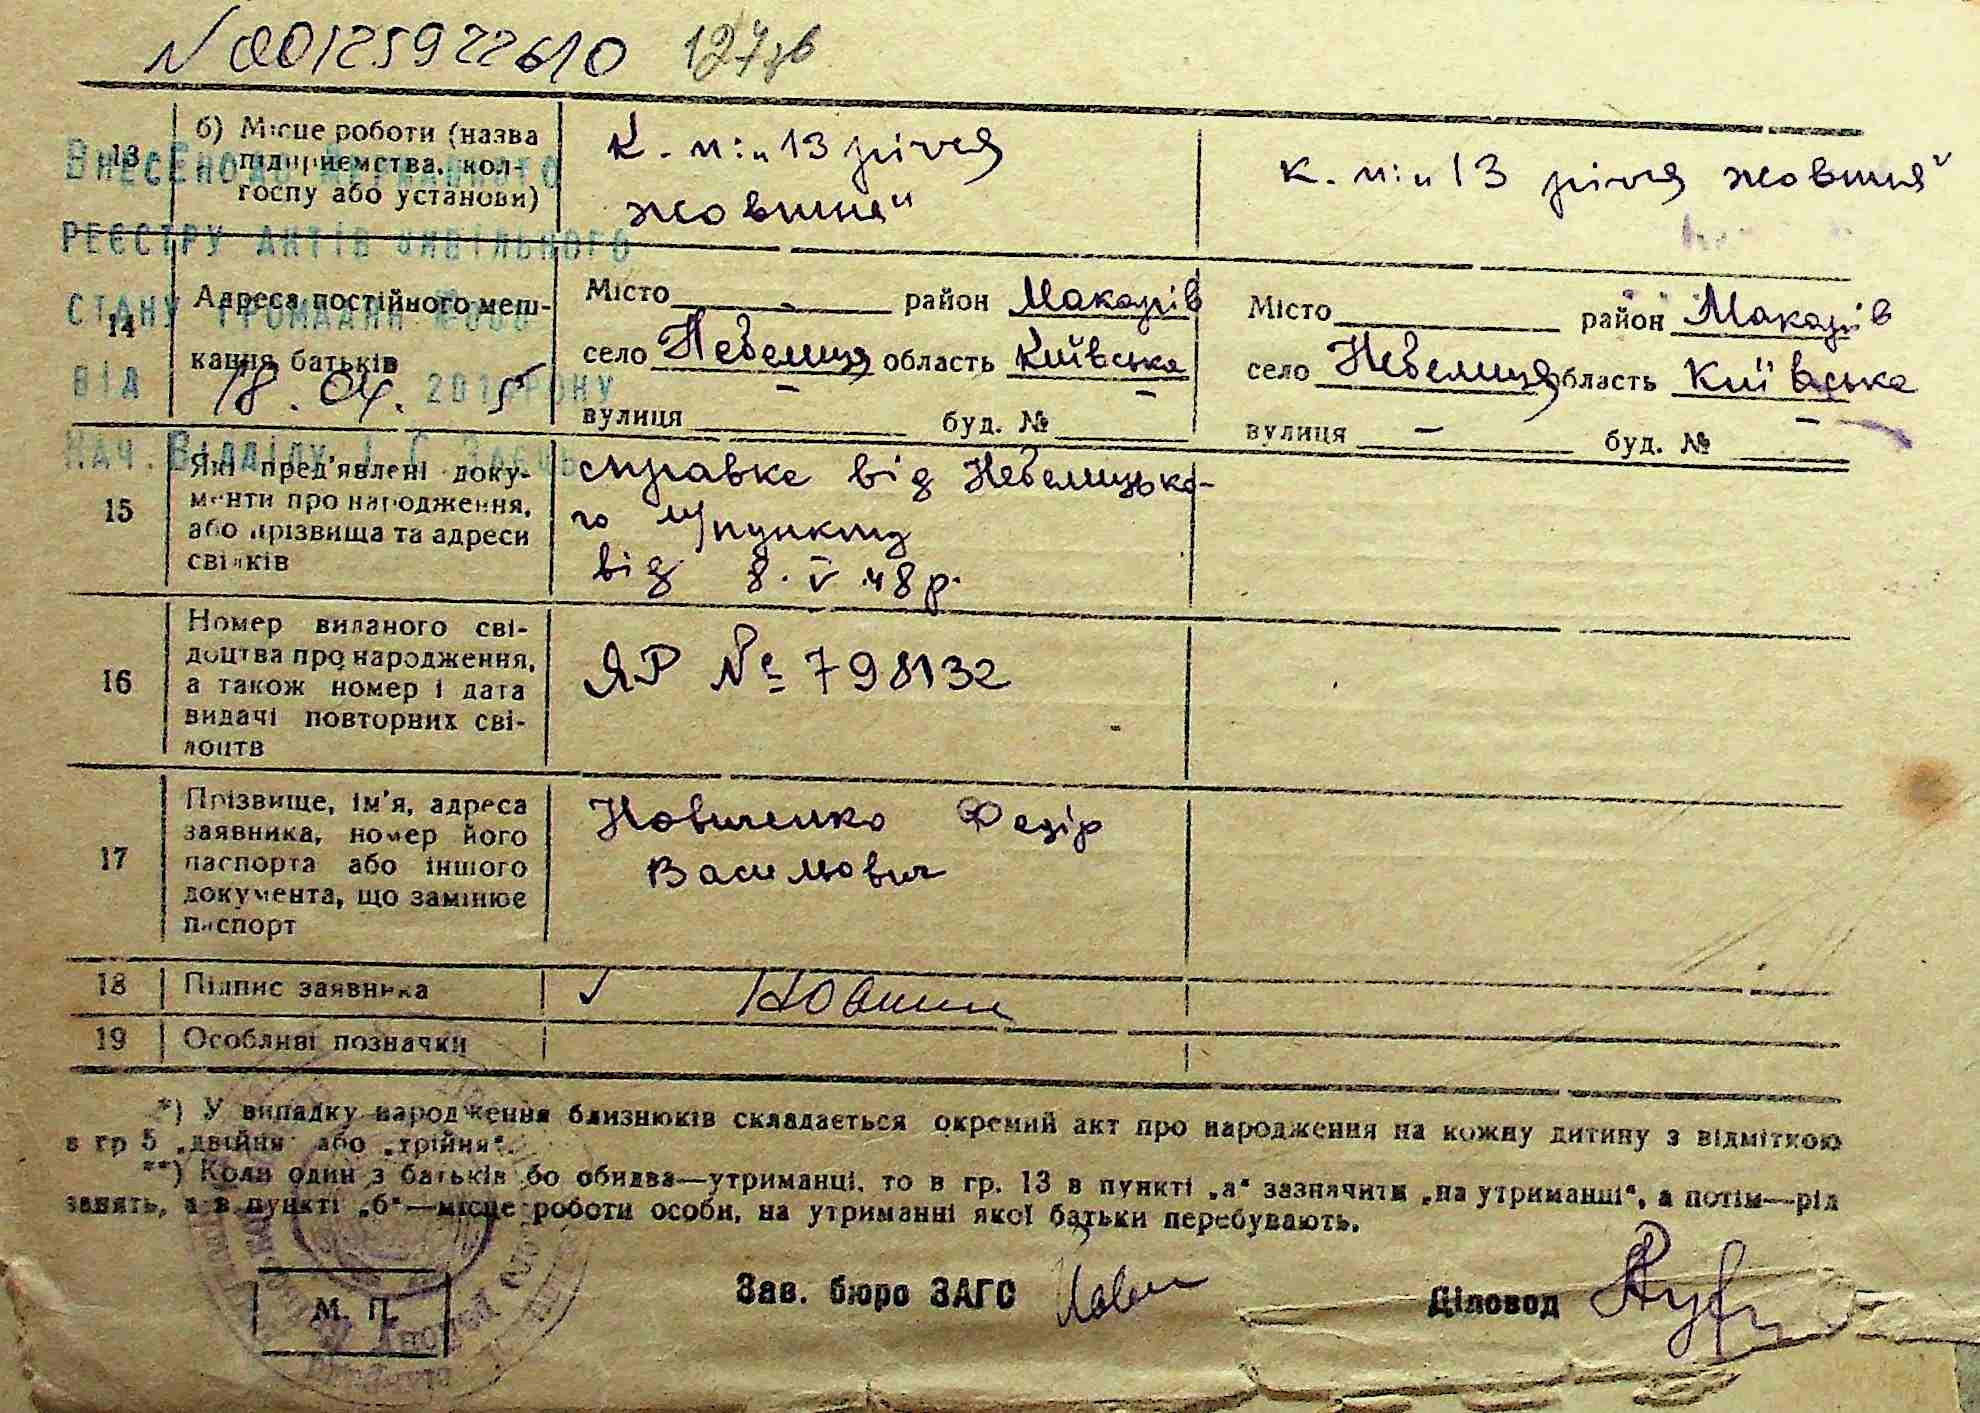 N 00125922610 127зв
13 б) Місце роботи (назва підприємства, колгоспу або установи)
к. п: „13 річчя жовтня"
к. п: „13 річчя жовтня"
Внесено до Державного
реєстру актів цивільного
стану громадян
від 18. 04. 2015 року
Нач. Відділу
14 Адреса постійного мешкання батьків
Місто - район Макарів
село Небелиця область Київська
вулиця - буд. № -
Місто район Макарів
село Небелиця область Київська
вулиця - буд. № -
15 Які пред'явлені документи про народження, або прізвища та адреси свідків
справка від Небелицько-
го м/пункту
від 8. V 48 р.
16 Номер виданого свідоцтва про народження, а також номер і дата видачі повторних свідоцтв
ЯР № 798132
17 Прізвище, ім'я, адреса заявника, номер його паспорта або іншого документа, що замінює паспорт
Новиченко Федір
Васильович
18 Підпис заявника
19 Особливі позначки
*) У випадку народження близнюків складається окремий акт про народження на кожну дитину з відміткою
в гр 5 „двійня" або „трійня".
**) Коли один з батьків бо обидва—утриманці, то в гр. 13 в пункті „а" зазначити „на утриманні", а потім—рід
занять, а в пункті „б"—місце роботи особи, на утриманні якої батьки перебувають.
М. П.
Зав. бюро ЗАГС
Діловод